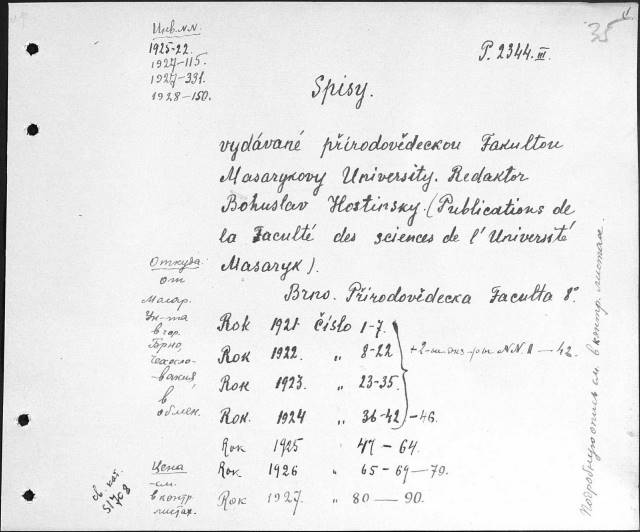 35
Инв. N.N.
1925-22.
1927-115.
1927-331.
1928-150.
P. 2344.III.
Spisy.
vydávané přírodovědeckou Fakultou
Masarykovy University. Redaktor
Bohuslav Hostinsky. (Publications de
la Faculté des sciences de l'Université
Masaryk).
Brno. Přírodovědecka Faculta 8°
Откуда:
от
Масар.
Ун-та
в гор.
Брно,
Чехосло-
-вакия,
в
обмен.
Rok 1921 Číslo 1-7.
Rok 1922. „ 8-22 +2-ые экз-ры N.N. 11 — 42.
Rok 1923. „ 23-35.
Rok. 1924 „ 36-42 -46.
Rok 1925 47 - 64.
Rok 1926 „ 65-69-79.
Rok 1927. „ 80 — 90.
Цена
см.
в контр.
листах.
св. кат.
Подробную опись см. в контр. листах.